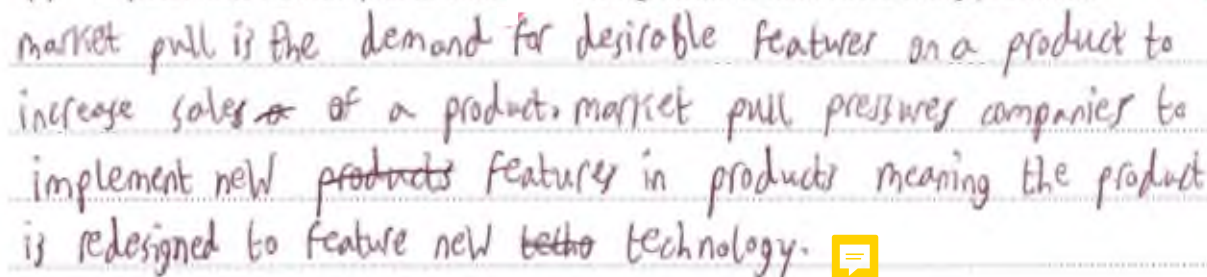 market pull is the demand for desirable features on a product to
increase sales of a product. market pull pressures companies to
implement new products features in products meaning the product
is redesigned to feature new techo technology.